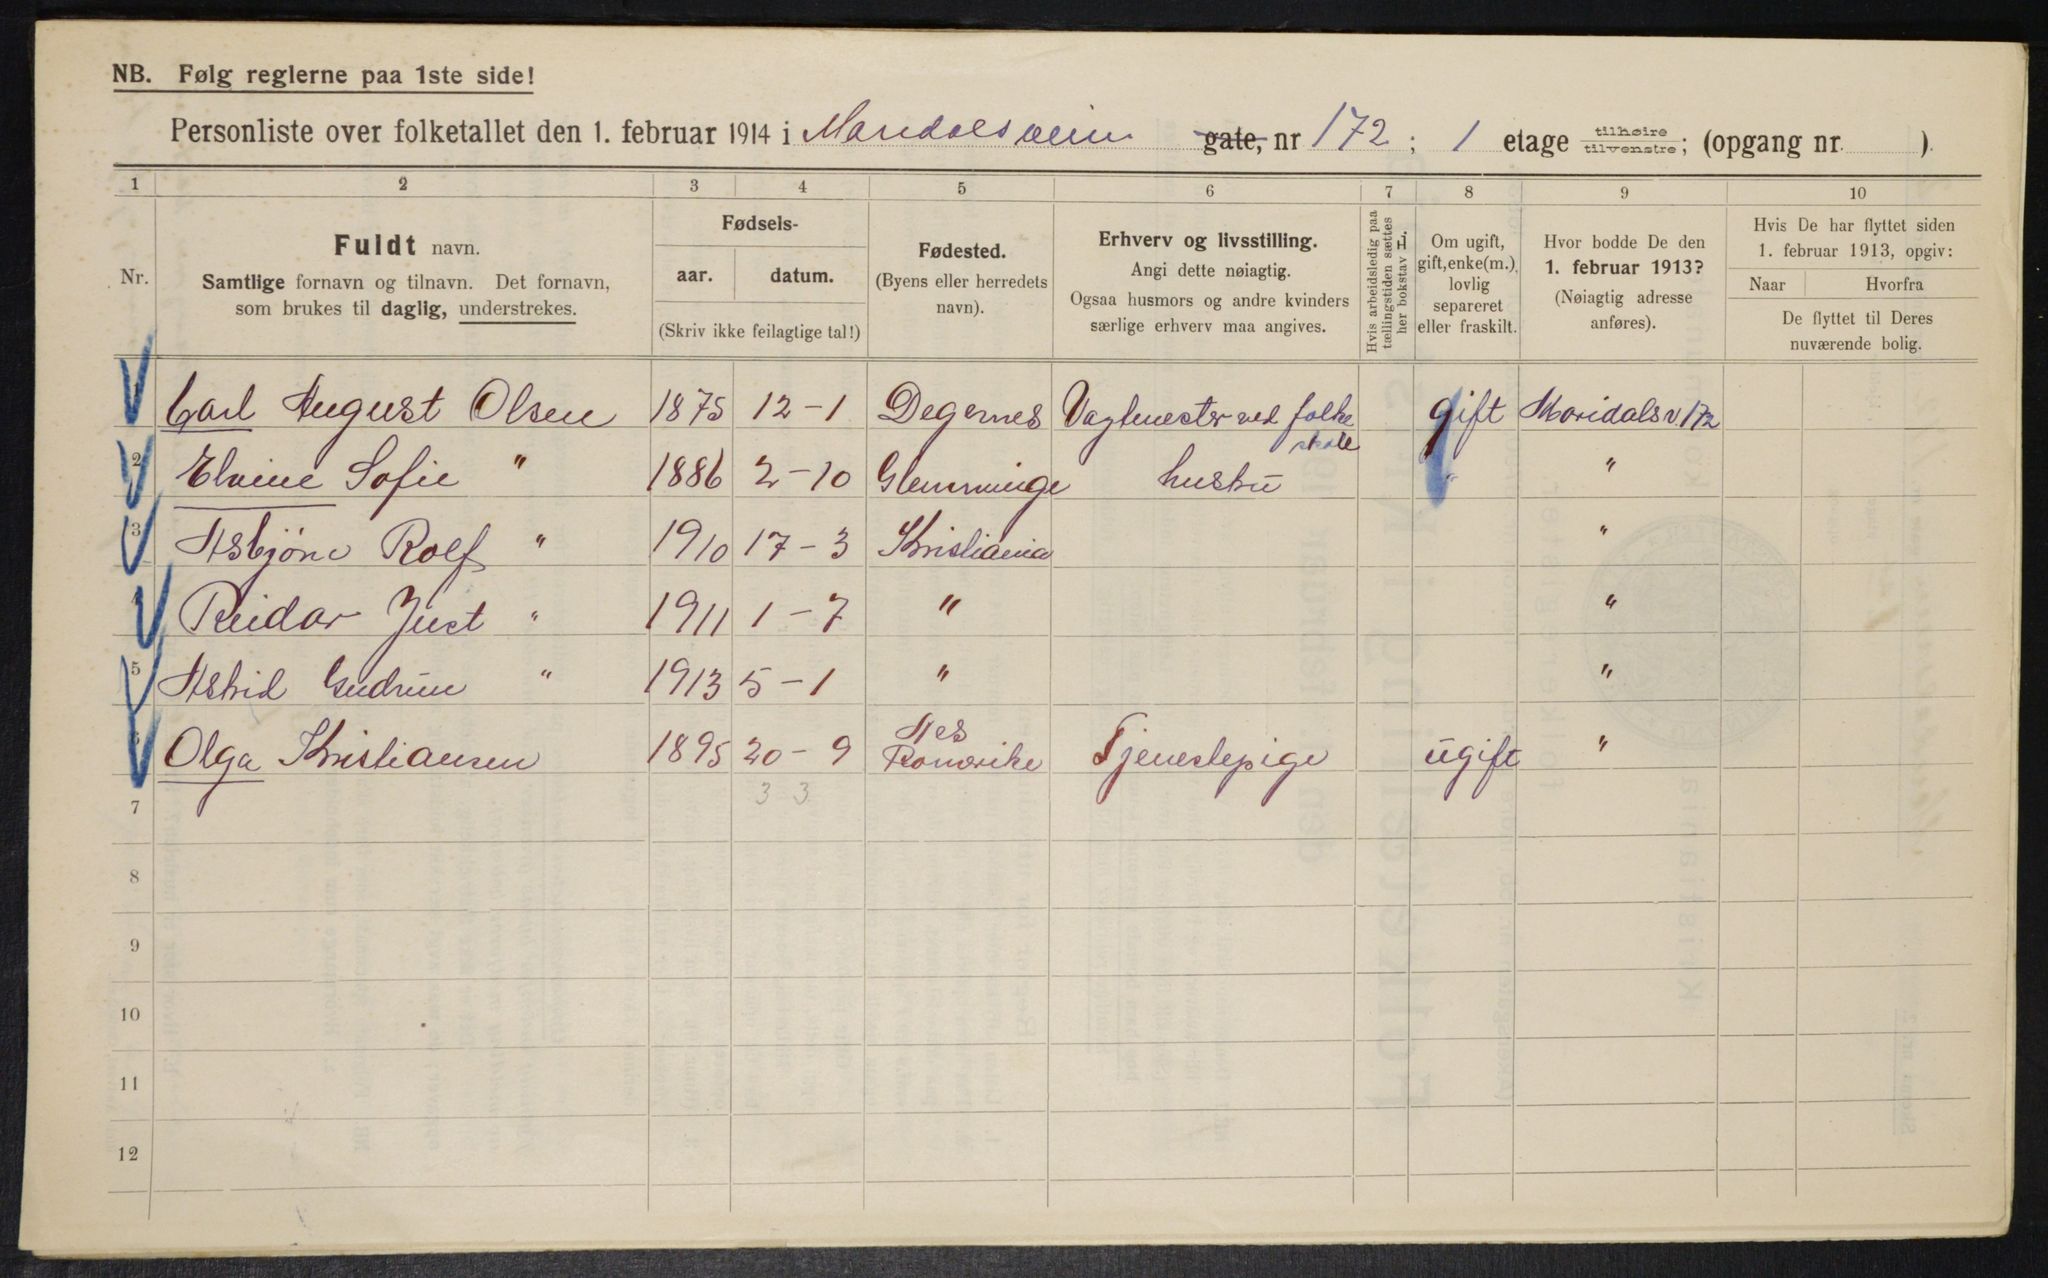 NB. Følg reglerne paa 1ste side!
Personliste over folketallet den 1. februar 1914 i Maridalsveien gate, nr 172 ; 1 etage tilhøire tilvenstre; (opgang nr. )
1 2 3 4 5 6 7 8 9 10
Nr.
Fuldt navn.
Samtlige fornavn og tilnavn. Det fornavn,
som brukes til daglig, understrekes.
Fødsels-
aar. datum.
(Skriv ikke feilagtige tal!)
Fødested.
(Byens eller herredets
navn).
Erhverv og livsstilling.
Angi dette nøiagtig.
Ogsaa husmors og andre kvinders
særlige erhverv maa angives.
Hvis arbeidsledig paa
tællingstiden sættes
her bokstav H.
Om ugift,
gift, enke(m.),
lovlig
separeret
eller fraskilt.
Hvor bodde De den
1. februar 1913?
(Nøiagtig adresse
anføres).
Hvis De har flyttet siden
1. februar 1913, opgiv:
Naar Hvorfra
De flyttet til Deres
nuværende bolig.
1 Carl August Olsen 1875 12-1 Degernes Vagtmester ved folke skole gift Maridalsv. 172
2 Elvine Sofie " 1886 2-10 Glemminge hustru " "
3 Asbjørn Rolf " 1910 17-3 Kristiania "
4 Reidar Just " 1911 1-7 " "
5 Astrid Gudrun " 1913 5-1 " "
6 Olga Kristiansen 1895 20-9 Nes Romerike Tjenestepige ugift "
3 3
7
8
9
10
11
12